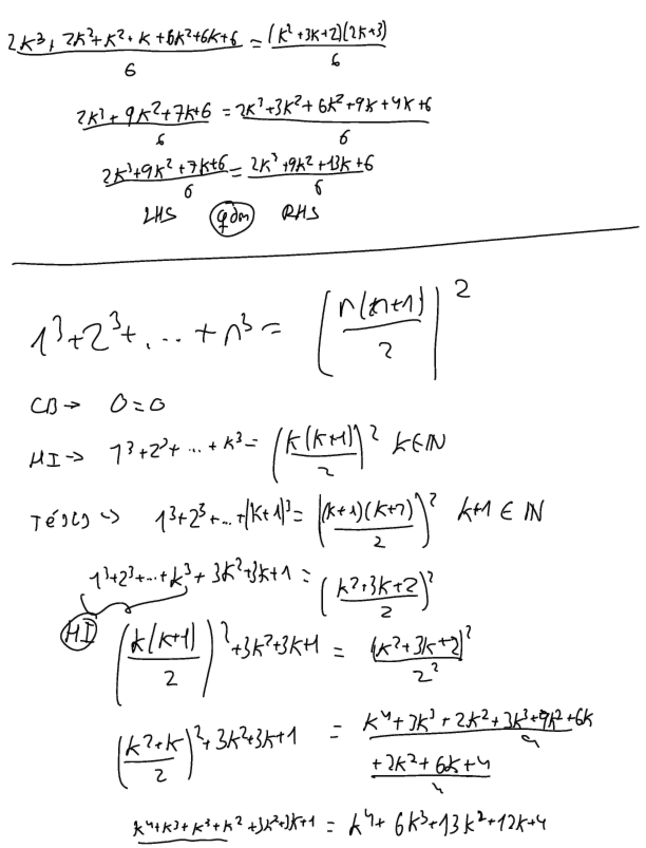 (2k³+2k²+k²+k+6k²+6k+6)/6 = ((k²+3k+2)(2k+3))/6
(2k³+9k²+7k+6)/6 = (2k³+3k²+6k²+9k+4k+6)/6
(2k³+9k²+7k+6)/6 = (2k³+9k²+13k+6)/6
LHS qdm RHS
1³+2³+...+n³ = (n(n+1)/2)²
CB → 0=0
HI → 1³+2³+...+k³ = (k(k+1)/2)² k∈ℕ
Tésis → 1³+2³+...+(k+1)³ = ((k+1)(k+2)/2)² k+1 ∈ ℕ
1³+2³+...+k³+3k²+3k+1 = ((k²+3k+2)/2)²
HI (k(k+1)/2)² +3k²+3k+1 = (k²+3k+2)²/2²
((k²+k)/2)² + 3k²+3k+1 = (k⁴+3k³+2k²+3k³+9k²+6k)/4
(+2k²+6k+4)/4
k⁴+k³+k³+k²+3k²+3k+1 = k⁴+6k³+13k²+12k+4